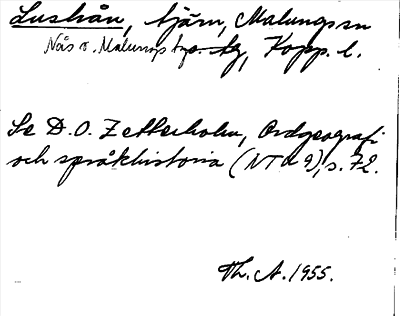 Lushån, tjärn, Malungs sn
Nås o. Malungs tgs. tg, Kopp. l.
Se D. O. Zetterholm, Ordgeografi
och språkhistoria (NT 9), s. 72.
Th. A. 1955.